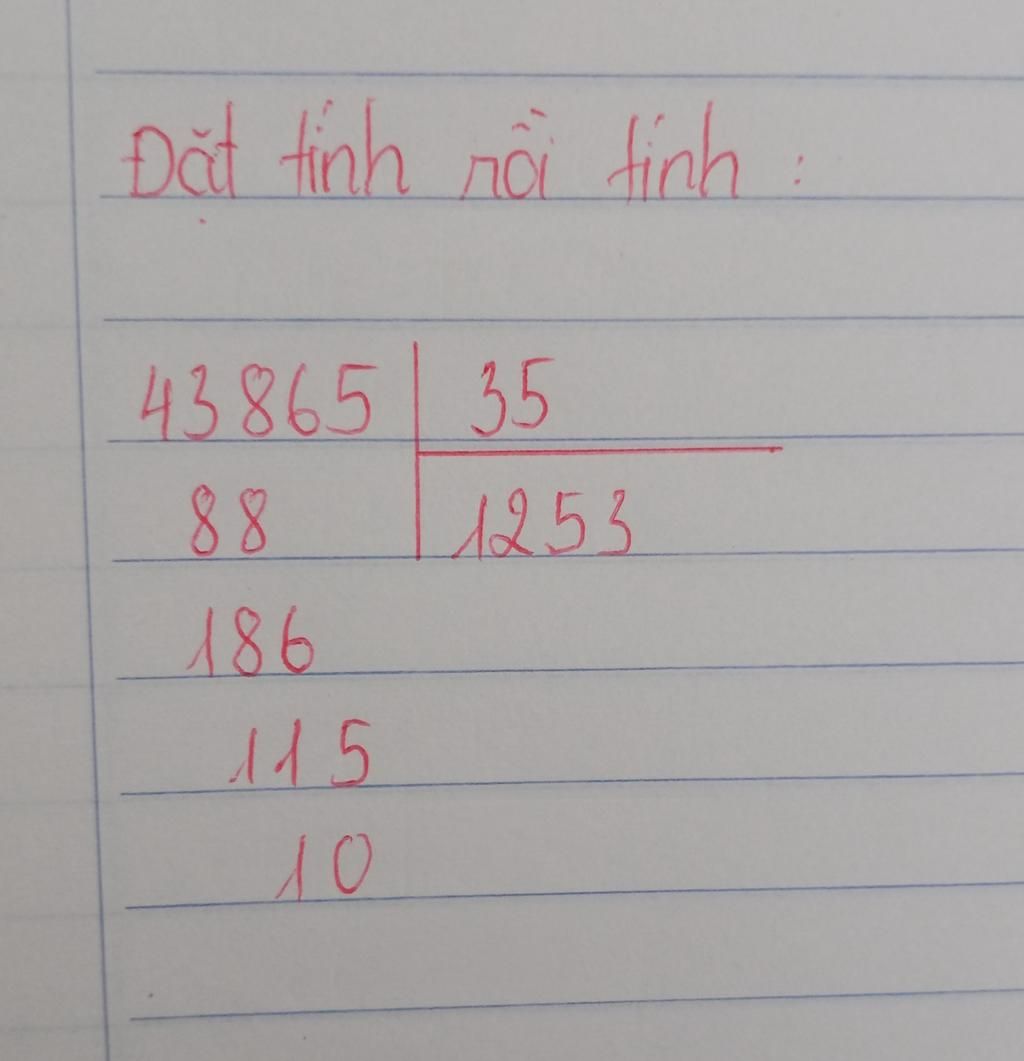 Đặt tính rồi tính :
43865 35
88 1253
186
115
10